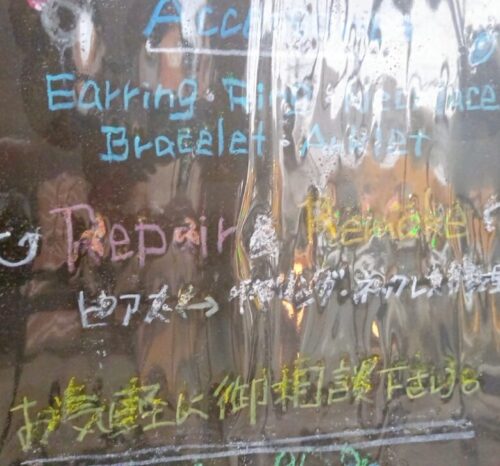 Accessories
Earring・Ring・Necklace
Bracelet・Anklet
Repair & Remake
ピアス ↔ イヤリング・ネックレス
お気軽に御相談下さい。